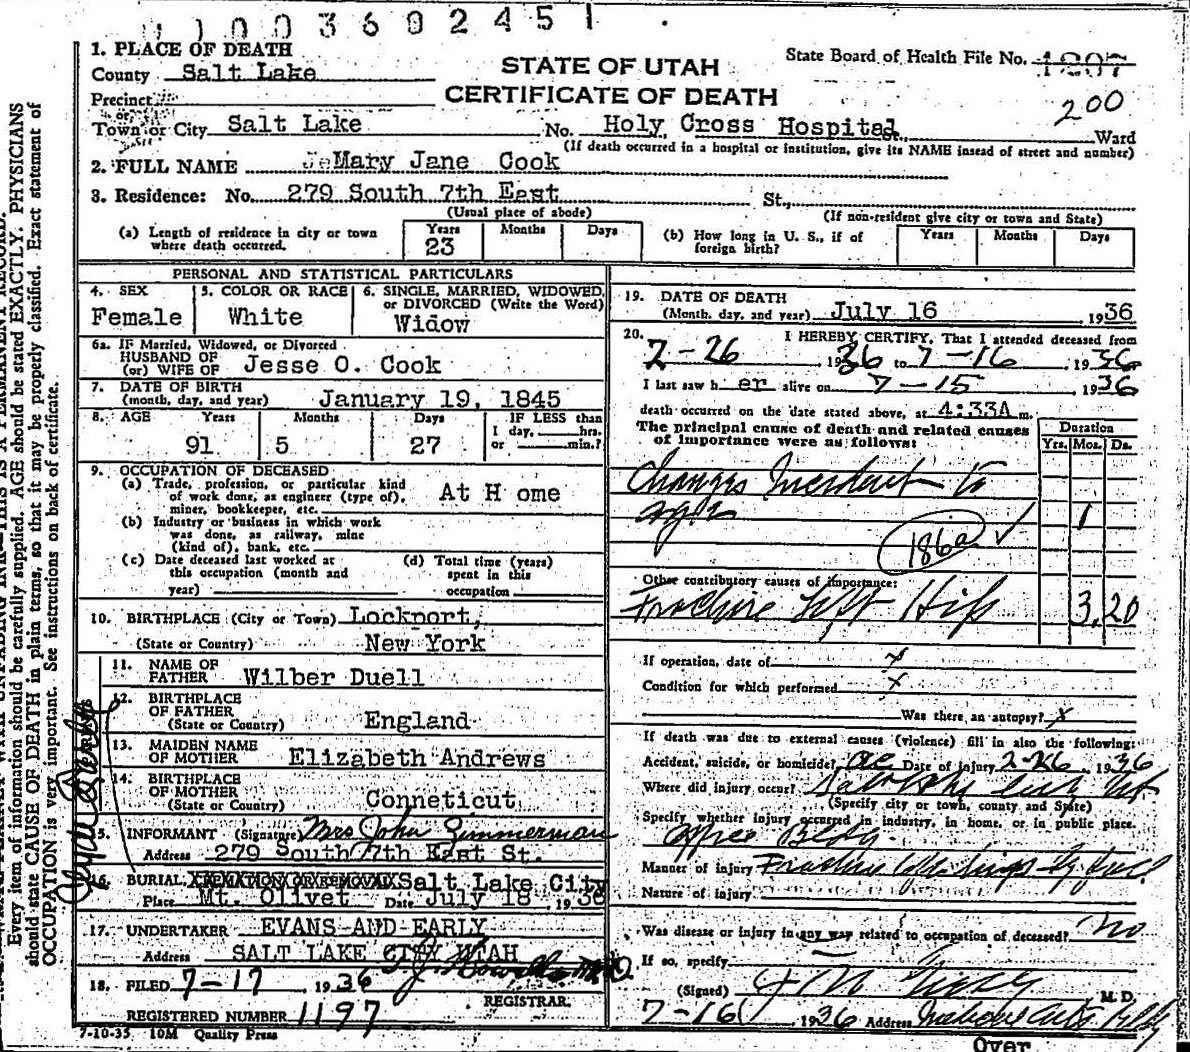 1003602451
1. PLACE OF DEATH
County Salt Lake
STATE OF UTAH
State Board of Health File No. 1207
Precinct
CERTIFICATE OF DEATH
200
or
Town or City Salt Lake No. Holy Cross Hospital St., Ward
(If death occurred in a hospital or institution, give its NAME insead of street and number)
2. FULL NAME Mary Jane Cook
3. Residence: No. 279 South 7th East St.,
(Usual place of abode) (If non-resident give city or town and State)
(a) Length of residence in city or town where death occurred. Years 23 Months Days
(b) How long in U. S., if of foreign birth? Years Months Days
PERSONAL AND STATISTICAL PARTICULARS
4. SEX Female
5. COLOR OR RACE White
6. SINGLE, MARRIED, WIDOWED, or DIVORCED (Write the Word) Widow
6a. IF Married, Widowed, or Divorced
HUSBAND OF
(or) WIFE OF Jesse O. Cook
7. DATE OF BIRTH
(month, day, and year) January 19, 1845
8. AGE Years Months Days IF LESS than
1 day, hrs.
or min.?
91 5 27
9. OCCUPATION OF DECEASED
(a) Trade, profession, or particular kind
of work done, as engineer (type of), At H ome
miner, bookkeeper, etc.
(b) Industry or business in which work
was done, as railway, mine
(kind of), bank, etc.
(c) Date deceased last worked at
this occupation (month and
year)
(d) Total time (years)
spent in this
occupation
10. BIRTHPLACE (City or Town) Lockport,
(State or Country) New York
11. NAME OF
FATHER Wilber Duell
12. BIRTHPLACE
OF FATHER
(State or Country) England
13. MAIDEN NAME
OF MOTHER Elizabeth Andrews
14. BIRTHPLACE
OF MOTHER
(State or Country) Conneticut
15. INFORMANT (Signature) Mrs John Zimmerman
Address 279 South 7th East St.
16. BURIAL, CREMATION OR REMOVAL Salt Lake City
Place Mt. Olivet Date July 18 1936
17. UNDERTAKER EVANS AND EARLY
Address SALT LAKE CITY UTAH
18. FILED 7-17 1936
REGISTRAR.
REGISTERED NUMBER 1197
7-10-35 10M Quality Press
19. DATE OF DEATH
(Month, day, and year) July 16 1936
20. I HEREBY CERTIFY, That I attended deceased from
2-26 1936 to 7-16 1936
I last saw h er alive on 7-15 1936
death occurred on the date stated above, at 4:33A m.
The principal cause of death and related causes
of importance were as follows:
Duration
Yrs. Mos. Ds.
Changes Incident to
age
1
186a ✓
Other contributory causes of importance:
Fracture Left Hip 3 20
If operation, date of x
Condition for which performed x
Was there an autopsy? x
If death was due to external causes (violence) fill in also the following:
Accident, suicide, or homicide? ac Date of injury 2-26 1936
Where did injury occur? Salt Lake City Ut
(Specify city or town, county and State)
Specify whether injury occurred in industry, in home, or in public place.
Office Bldg.
Manner of injury Fracture left hip by fall
Nature of injury
Was disease or injury in any way related to occupation of deceased? No
If so, specify
(Signed) M. D.
7-16 1936 Address Medical Arts Bldg
Over
Every item of information should be carefully supplied. AGE should be stated EXACTLY. PHYSICIANS
should state CAUSE OF DEATH in plain terms, so that it may be properly classified. Exact statement of
OCCUPATION is very important. See instructions on back of certificate.